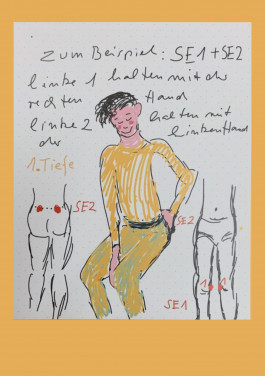 zum Beispiel: SE1+SE2
linke 1 halten mit der
rechten Hand
linke 2 halten mit
der linken Hand
1. Tiefe
SE2
SE2
SE1
1 1